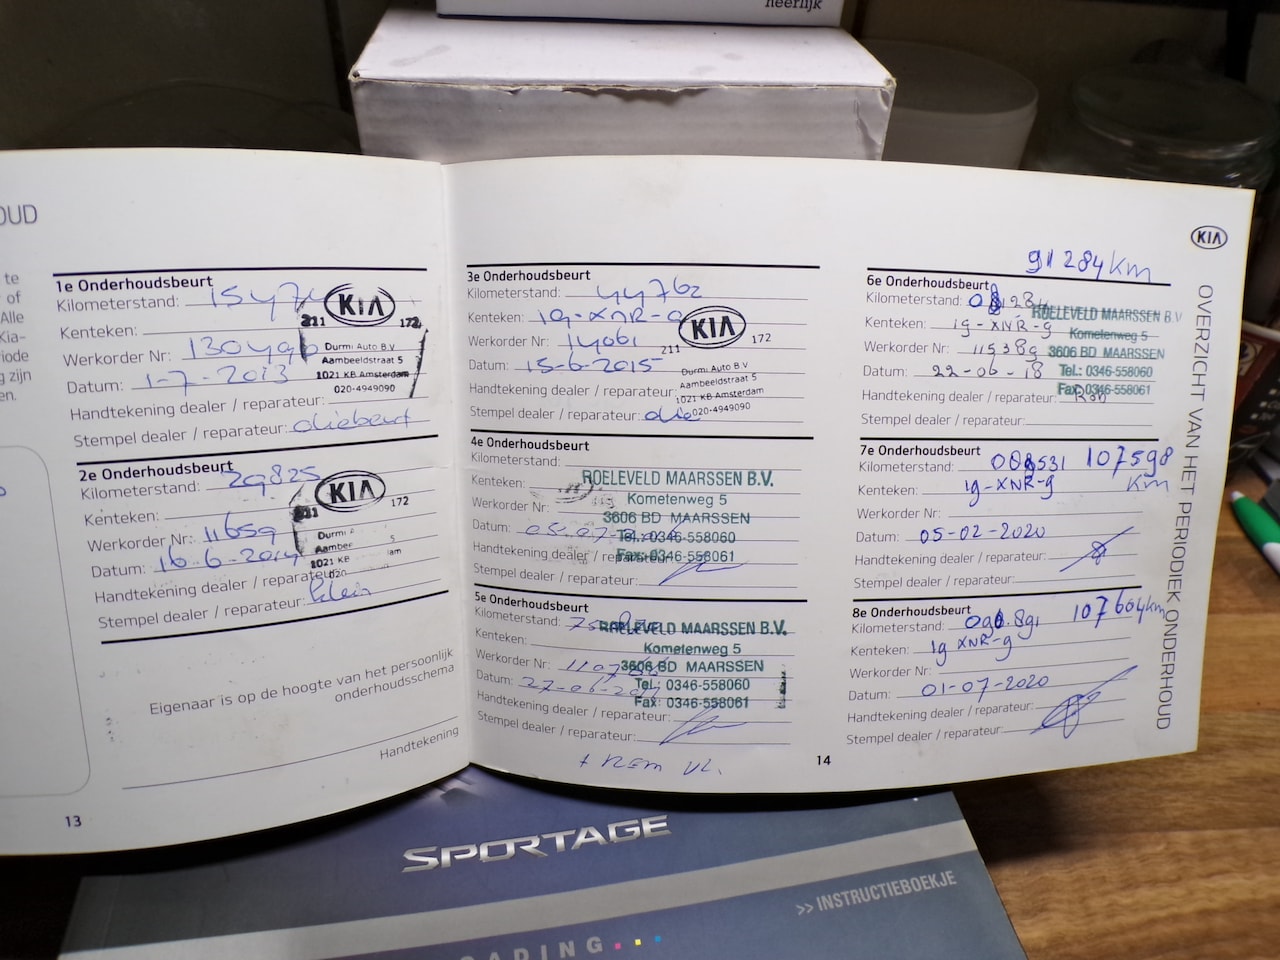 heerlijk
OUD
te
of
Alle
Kia-
riode
g zijn
en.
1e Onderhoudsbeurt
Kilometerstand:
Kenteken:
Werkorder Nr:
Datum: 1-7-2013
Handtekening dealer / reparateur:
Stempel dealer / reparateur: oliebeurt
KIA
211 172
Durmi Auto B.V
Aambeeldstraat 5
1021 KB Amsterdam
020-4949090
2e Onderhoudsbeurt
Kilometerstand: 29825
Kenteken:
Werkorder Nr: 11659
Datum: 16-6-2014
Handtekening dealer / reparateur:
Stempel dealer / reparateur: klein
KIA
211 172
Durmi
Aambee 5
1021 KB dam
020
Eigenaar is op de hoogte van het persoonlijk
onderhoudsschema
Handtekening
13
3e Onderhoudsbeurt
Kilometerstand: 44762
Kenteken: 19-XNR-9
Werkorder Nr: 14061
Datum: 15-6-2015
Handtekening dealer / reparateur:
Stempel dealer / reparateur: olie
KIA
211 172
Durmi Auto B.V
Aambeeldstraat 5
1021 KB Amsterdam
020-4949090
4e Onderhoudsbeurt
Kilometerstand:
Kenteken:
Werkorder Nr:
Datum: 05-07-
Handtekening dealer / reparateur:
Stempel dealer / reparateur:
ROELEVELD MAARSSEN B.V.
Kometenweg 5
3606 BD MAARSSEN
Tel.: 0346-558060
Fax: 0346-558061
5e Onderhoudsbeurt
Kilometerstand:
Kenteken:
Werkorder Nr:
Datum: 27-06-
Handtekening dealer / reparateur:
Stempel dealer / reparateur:
ROELEVELD MAARSSEN B.V.
Kometenweg 5
3606 BD MAARSSEN
Tel.: 0346-558060
Fax: 0346-558061
+ Rem VL.
14
KIA
91284 km
6e Onderhoudsbeurt
Kilometerstand:
Kenteken: 19-XNR-9
Werkorder Nr: 115389
Datum: 22-06-18
Handtekening dealer / reparateur: Ron
Stempel dealer / reparateur:
ROELEVELD MAARSSEN B.V
Kometenweg 5
3606 BD MAARSSEN
Tel.: 0346-558060
Fax: 0346-558061
7e Onderhoudsbeurt
Kilometerstand: 107598 km
Kenteken: 19-XNR-9
Werkorder Nr:
Datum: 05-02-2020
Handtekening dealer / reparateur:
Stempel dealer / reparateur:
8e Onderhoudsbeurt
Kilometerstand: 107604km
Kenteken: 19 XNR-9
Werkorder Nr:
Datum: 01-07-2020
Handtekening dealer / reparateur:
Stempel dealer / reparateur:
OVERZICHT VAN HET PERIODIEK ONDERHOUD
SPORTAGE
>> INSTRUCTIEBOEKJE
OADING...